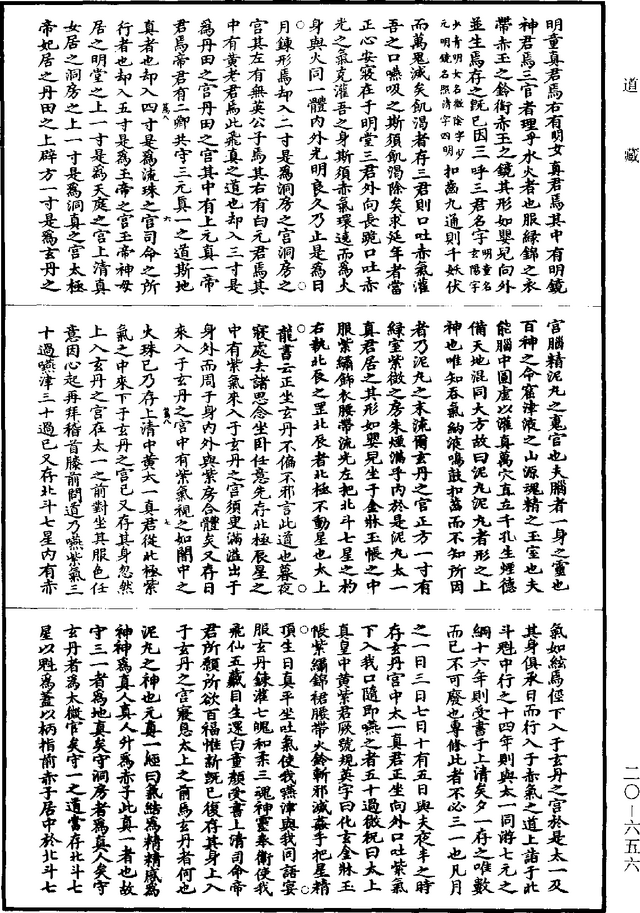 道藏
明童真君焉右有明女真君焉其中有明鏡
神君焉三官者理乎水火者也服綠錦之衣
帶赤玉之鈴銜赤玉之鏡其形如嬰兒向外
並生焉存之既已因三呼三君名字明童名玄陽字
少青明女名微陰字少元明鏡名照清字四明扣齒九通則千妖伏
而萬鬼滅矣飢渴者存三君則口吐赤氣灌
吾之口嚥吸之斯須飢渴除矣求延年者當
正心安寢在于明堂三君外向長跪口吐赤
光之氣克灌吾之身斯須赤氣環遶而爲火
身與火同一體內外光明良久乃止是爲日
月鍊形焉却入二寸是爲洞房之宮洞房之
宮其左有無英公子焉其右有白元君焉其
中有黃老君焉此飛真之道也却入三寸是
爲丹田之宮丹田之宮其中有上元真一帝
君焉帝君有二卿共守三元真一之道斯地
真者也却入四寸是爲流珠之宮司命之所
行者也却入五寸是爲玉帝之宮玉帝神母
居之明堂之上一寸是爲天庭之宮上清真
女居之洞房之上一寸是爲洞真之宮太極
帝妃居之丹田之上辟方一寸是爲玄丹之
宮腦精泥丸之䰟宮也夫腦者一身之靈也
百神之命窟津液之山源魂精之玉室也夫
能腦中圓虛以灌真萬穴直立千孔生煙德
備天地混同大方故曰泥丸泥丸者形之上
神也唯知吞氣納液鳴鼓扣齒而不知所因
者乃泥丸之末流爾玄丹之宮正方一寸有
綠室紫微之房朱煙滿乎內於是泥丸太一
真君居之其形如嬰兒坐于金牀玉帳之中
服紫繡錦衣腰帶流光左把北斗七星之杓
右執北辰之罡北辰者北極不動星也太上
龍書云正坐玄丹不偏不邪言此道也暮夜
寢處去諸思念坐卧任意先存北極辰星之
中有紫氣來入于玄丹之宮須臾滿溢出于
身外而周于身內外與紫房合體矣又存日
來入于玄丹之宮中有紫氣視之如闇中之
火珠已乃存上清中黃太一真君從北極紫
氣之中來下于玄丹之宮已又存其身忽然
上入玄丹之宮在太一之前對坐其服色任
意因心起再拜稽首膝前問道乃嚥紫氣三
十過嚥津三十過已又存北斗七星內有赤
氣如絃焉徑下入于玄丹之宮於是太一及
其身俱乘日而行入于赤氣之道上詣于北
斗魁中行之十四年則與太一同游七元之
綱十六年則受書于上清矣夕一存之唯數
而已不可廢也專修此者不必三一也凡月
之一日三日七日十有五日與夫夜半之時
存玄丹宮中太一真君正坐向外口吐紫氣
下入我口隨即嚥之者五十過微祝曰太上
真皇中黃紫君厥號規英字曰化玄金牀玉
帳紫繡錦裙腰帶火鈴斬邪滅姦手把星精
頂生日真平坐吐氣使我嚥津與我同語宴
服玄丹鍊灌七魄和柔三魂神靈奉衛使我
飛仙五藏自生還白童顔受書上清司命帝
君所願所欲百福惟新既已復存其身上入
于玄丹之宮寢息太上之前焉玄丹者何也
泥丸之神也元真一經曰氣結爲精精感爲
神神爲真人真人升爲赤子此真一者也故
守三一者爲地真矣守洞房者爲真人矣守
玄丹者爲太微官矣守一之道當存北斗七
星以魁爲蓋以柄指前赤子居中於北斗七
二〇—六五六